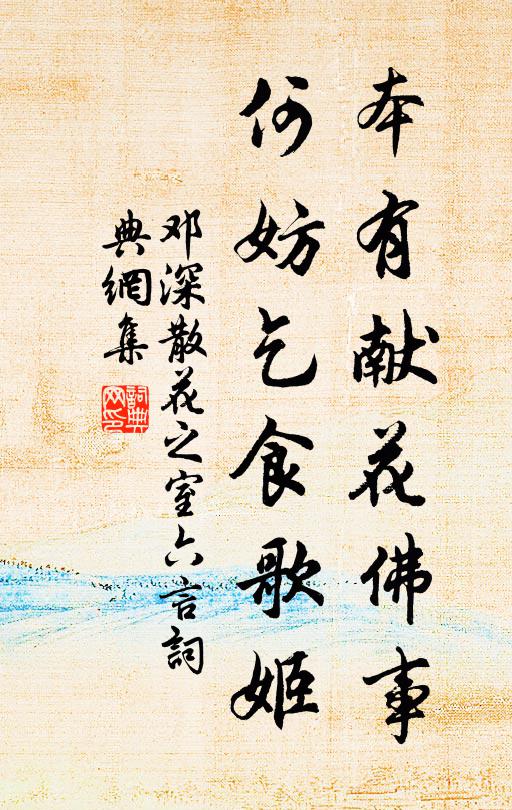 本有献花佛事
何妨乞食歌姬
邓深散花之室六言詞
典網集
詞典
网印